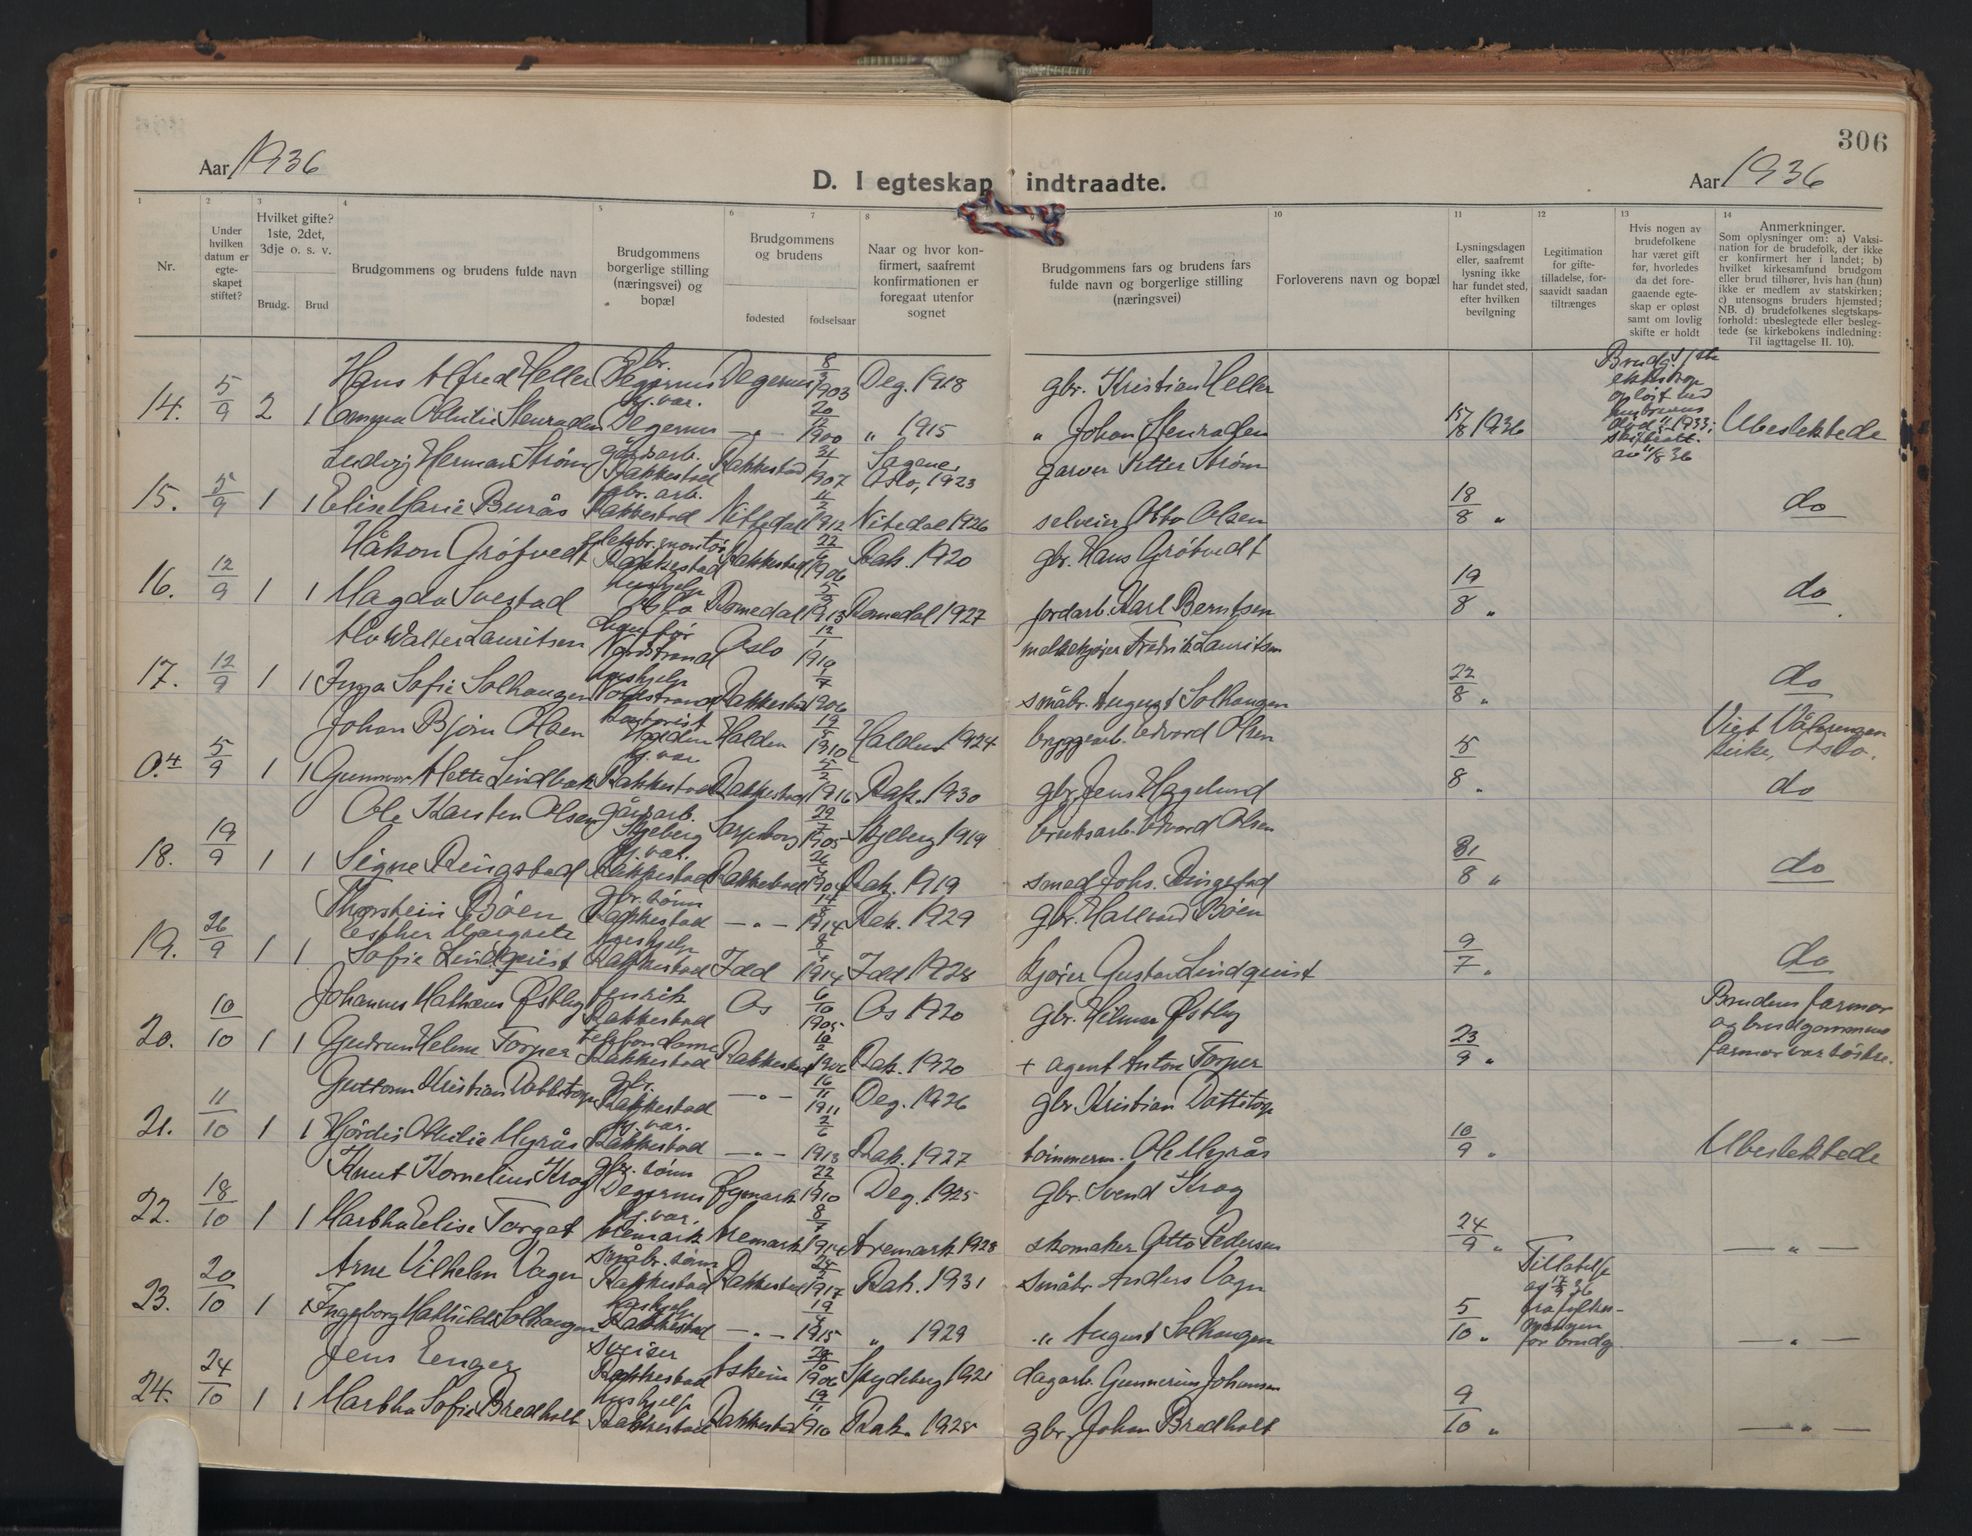 306
Aar 1936
D. I egteskap indtraadte.
Aar 1936
1 2 3 4 5 6 7 8 10 11 12 13 14
Nr.
Under hvilken datum er egteskapet stiftet?
Hvilket gifte? 1ste, 2det, 3dje o. s. v.
Brudg. Brud
Brudgommens og brudens fulde navn
Brudgommens borgerlige stilling (næringsvei) og bopæl
Brudgommens og brudens
fødested fødselsaar
Naar og hvor konfirmert, saafremt konfirmationen er foregaat utenfor sognet
Brudgommens fars og brudens fars fulde navn og borgerlige stilling (næringsvei)
Forloverens navn og bopæl
Lysningsdagen eller, saafremt lysning ikke har fundet sted, efter hvilken bevilgning
Legitimation for giftetilladelse, forsaavidt saadan tiltrænges
Hvis nogen av brudefolkene har været gift før, hvorledes da det foregaaende egteskap er opløst samt om lovlig skifte er holdt
Anmerkninger.
Som oplysninger om: a) Vaksination for de brudefolk, der ikke er konfirmert her i landet; b) hvilket kirkesamfund brudgom eller brud tilhører, hvis han (hun) ikke er medlem av statskirken; c) utensogns bruders hjemsted; NB. d) brudefolkenes slegtskapsforhold: ubeslegtede eller beslegtede (se kirkebokens indledning: Til iagttagelse II. 10).
Hans Alfred Heller gbr. Degernes Degernes 8/3 1903 Deg. 1918 gbr. Kristian Heller
14. 5/9 2 1 Emma Othilie Stenraden hj.var. Degernes —"— 1900 " 1915 " Johan Stenraden 15/8 1936 Ubeslektede
Ludvig Herman Strøm gårdsarb. Rakkestad Rakkestad 1907 Sagene, Oslo, 1923 garver Petter Strøm
15. 5/9 1 1 Elise Marie Burås Rakkestad Nittedal 1912 Nitedal 1926 selveier Otto Olsen 18/8 " do
Håkon Grøtvedt Rakkestad Rakkestad 22/6 1906 Rak. 1920 gbr. Hans Grøtvedt
16. 12/9 1 1 Magda Svestad hushjelp Oslo Romedal 1913 Romedal 1927 jordarb. Karl Berntsen 19/8 " do
Alv Walter Lauritsen Nordstrand Oslo 12/1 1910 melkekjører Fredrik Lauritsen
17. 12/9 1 1 Inga Sofie Solhaugen hushjelp Nordstrand Rakkestad 1906 småbr. August Solhaugen 22/8 " do
Johan Bjørn Olsen Halden Halden 1910 Halden 1924 bryggearb. Edvard Olsen Viet Vålerengen kirke, Oslo.
0.4 5/9 1 1 Gunnvor Alette Lindbæk hj.var Rakkestad Rakkestad 5/2 1916 Rak. 1930 gbr. Jens Hagelund 5/8 " do
Ole Karsten Olsen gårdsarb. Skjeberg Sarpsborg 1905 Skjeberg 1919 bruksarb. Edvard Olsen
18. 19/9 1 1 Signe Ringstad hj.var. Rakkestad Rakkestad 1904 Rak. 1919 smed Johs. Ringstad 31/8 " do
Thorstein Bøen gbr. sønn Rakkestad —"— 1914 Rak. 1929 gbr. Hallvard Bøen
19. 26/9 1 1 Esther Margrete Sofie Lindqvist hushjelp Rakkestad Idd 1914 Idd 1928 kjører Gustav Lindquist 9/7 " do
Johannes Mathæus Østby Rakkestad Os 6/10 1905 Os 1920 gbr. Hilmar Østby
20. 10/10 1 1 Gudrun Helene Torper telefondame Rakkestad Rakkestad 1906 Rak. 1920 + agent Anton Torper 23/9 " Brudens farmor og brudgommens farmor var søstre.
Guttorm Kristian Dattetorp gbr. Rakkestad —"— 16/11 1911 Deg. 1926 gbr. Kristian Dattetorp
21. 11/10 1 1 Hjørdis Othilie Myrås hj.var. Rakkestad —"— 2/6 1913 Rak. 1927 tømmerm. Ole Myrås 10/9 " Ubeslektede
Knut Kornelius Krog gbr. sønn Degernes Øymark 1910 Deg. 1925 gbr. Svend Krog
22. 18/10 1 1 Martha Elise Torget hj.var. Aremark Aremark 8/7 1914 Aremark 1928 skomaker Otto Pedersen 24/9 " —"—
Arne Vilhelm Vagen småbr. sønn Rakkestad Rakkestad 1917 Rak. 1931 småbr. Anders Vagn
23. 20/10 1 1 Ingeborg Mathilde Solhaugen hushjelp Rakkestad —"— 1915 " 1929 " August Solhaugen 5/10 " Tillatelse av 36 fra fylkesmannen for brudg. —"—
Jens Enger sveiser Rakkestad Askim 1906 Spydeberg 1921 dagarb. Gunnerius Johansen
24. 24/10 1 1 Martha Sofie Bredholt hushjelp Rakkestad Rakkestad 19/11 1910 Rak. 1925 gbr. Johan Bredholt 9/10 " —"—